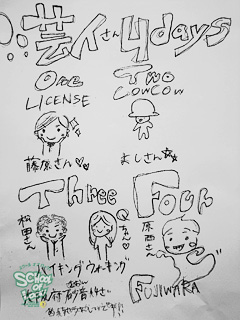 芸人さん4days
One Two
LICENSE COWCOW
藤原さん よしさん
Three Four
松田さん Qちゃん 原西さん
ハイキングウォーキング
FUJIWARA
SCHOOL